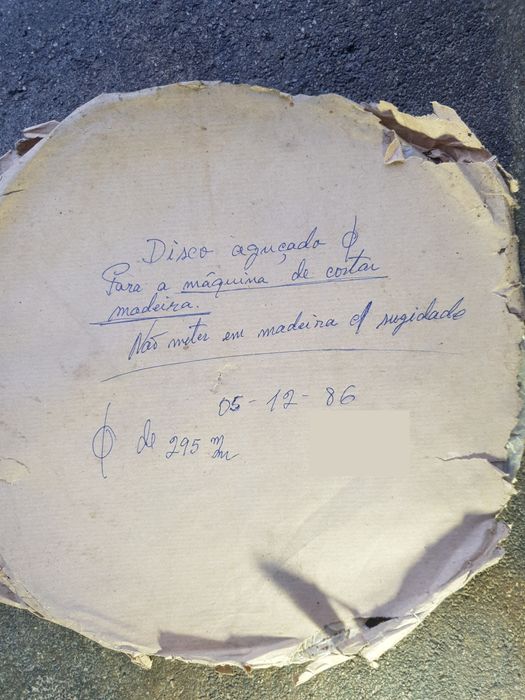 Disco aguçado ϕ
Para a máquina de cortar
madeira.
Não meter em madeira c/ sugidade
05-12-86
ϕ de 295 m/m